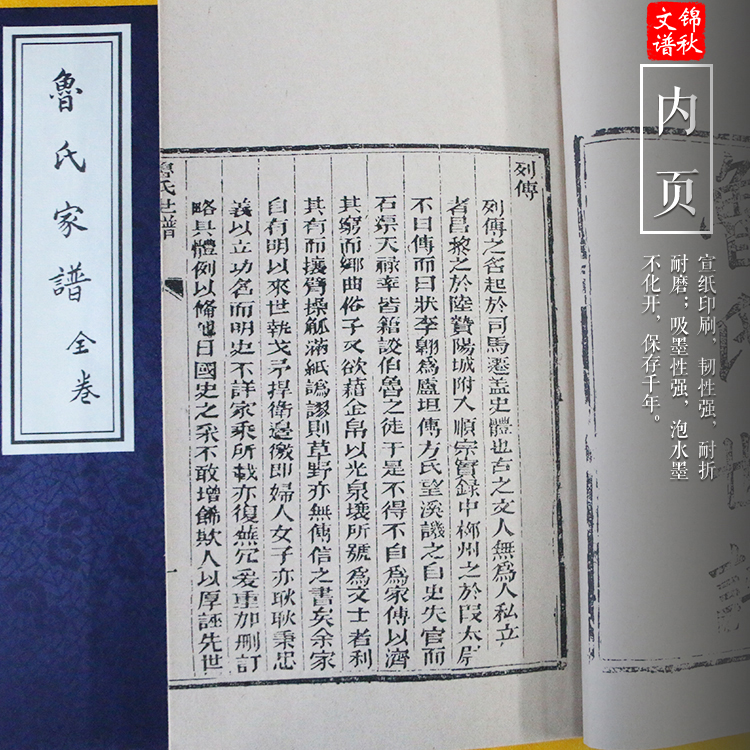 锦秋
文谱
内页
宣纸印刷，韧性强，耐折
耐磨；吸墨性强，泡水墨
不化开，保存千年。
列傳
列傳之名起於司馬遷盖史體也古之文人無爲人私立
者昌黎之於陸贄陽城附入順宗實録中柳州之於段太尉
不曰傳而曰狀李翱爲盧坦傳方氏望溪譏之自史失官而
石渠天祿率皆籍談伯魯之徒于是不得不自爲家傳以濟
其窮而鄉曲俗子又欲藉金帛以光泉壤所號爲文士者利
其有而攘臂操觚滿紙譌謬則草野亦無傳信之書矣余家
自有明以來世執戈矛捍衛邊徼即婦人女子亦耿耿秉忠
義以立功名而明史不詳家乘所載亦復蕪冗爰重加刪訂
略具體例以備他日國史之采不敢增餙欺人以厚誣先世
魯氏世譜
一
魯氏家譜 全卷